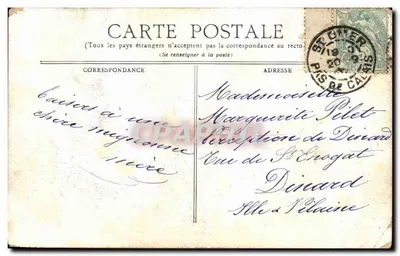 CARTE POSTALE
(Tous les pays étrangers n'acceptent pas la correspondance au recto
(Se renseigner à la poste)
CORRESPONDANCE
ADRESSE
ST OMER
PAS DE CALAIS
baisers à une
chère mignonne
mère
Mademoiselle
Marguerite Pilet
réception de Dinard
rue de St Enogat
Dinard
Ille & Vilaine